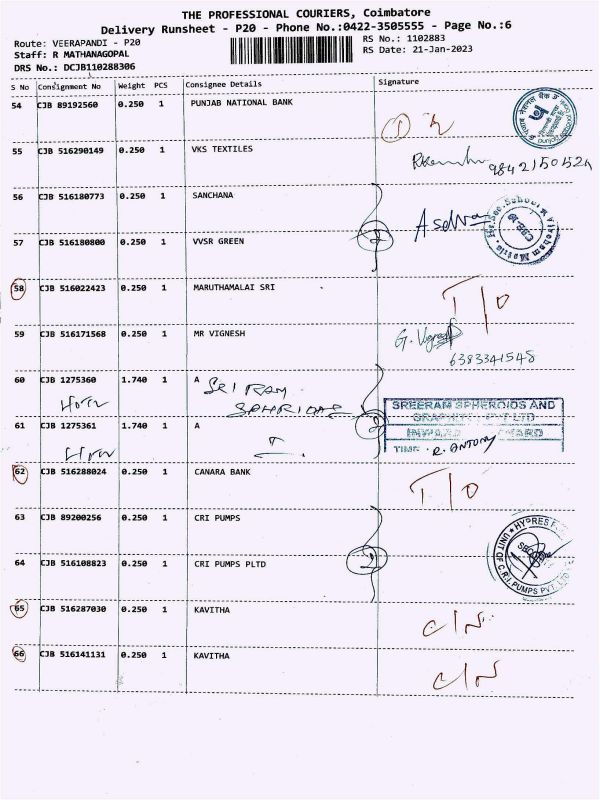 THE PROFESSIONAL COURIERS, Coimbatore
Delivery Runsheet - P20 - Phone No.:0422-3505555 - Page No.:6
Route: VEERAPANDI - P20
RS No.: 1102883
Staff: R MATHANAGOPAL
RS Date: 21-Jan-2023
DRS No.: DCJB110288306
S No Consignment No Weight PCS Consignee Details Signature
54 CJB 89192560 0.250 1 PUNJAB NATIONAL BANK
1
55 CJB 516290149 0.250 1 VKS TEXTILES
56 CJB 516180773 0.250 1 SANCHANA
57 CJB 516180800 0.250 1 VVSR GREEN
2
58 CJB 516022423 0.250 1 MARUTHAMALAI SRI
T/O
59 CJB 516171568 0.250 1 MR VIGNESH
6383341548
60 CJB 1275360 1.740 1 A SRI RAM
SREERAM SPHEROIDS AND
61 CJB 1275361 1.740 1 A
R. ANTONY
62 CJB 516288024 0.250 1 CANARA BANK
T/O
63 CJB 89200256 0.250 1 CRI PUMPS
64 CJB 516108823 0.250 1 CRI PUMPS PLTD
2
UNIT OF C.R.I. PUMPS PVT. LTD
65 CJB 516287030 0.250 1 KAVITHA
C/N
66 CJB 516141131 0.250 1 KAVITHA
C/N